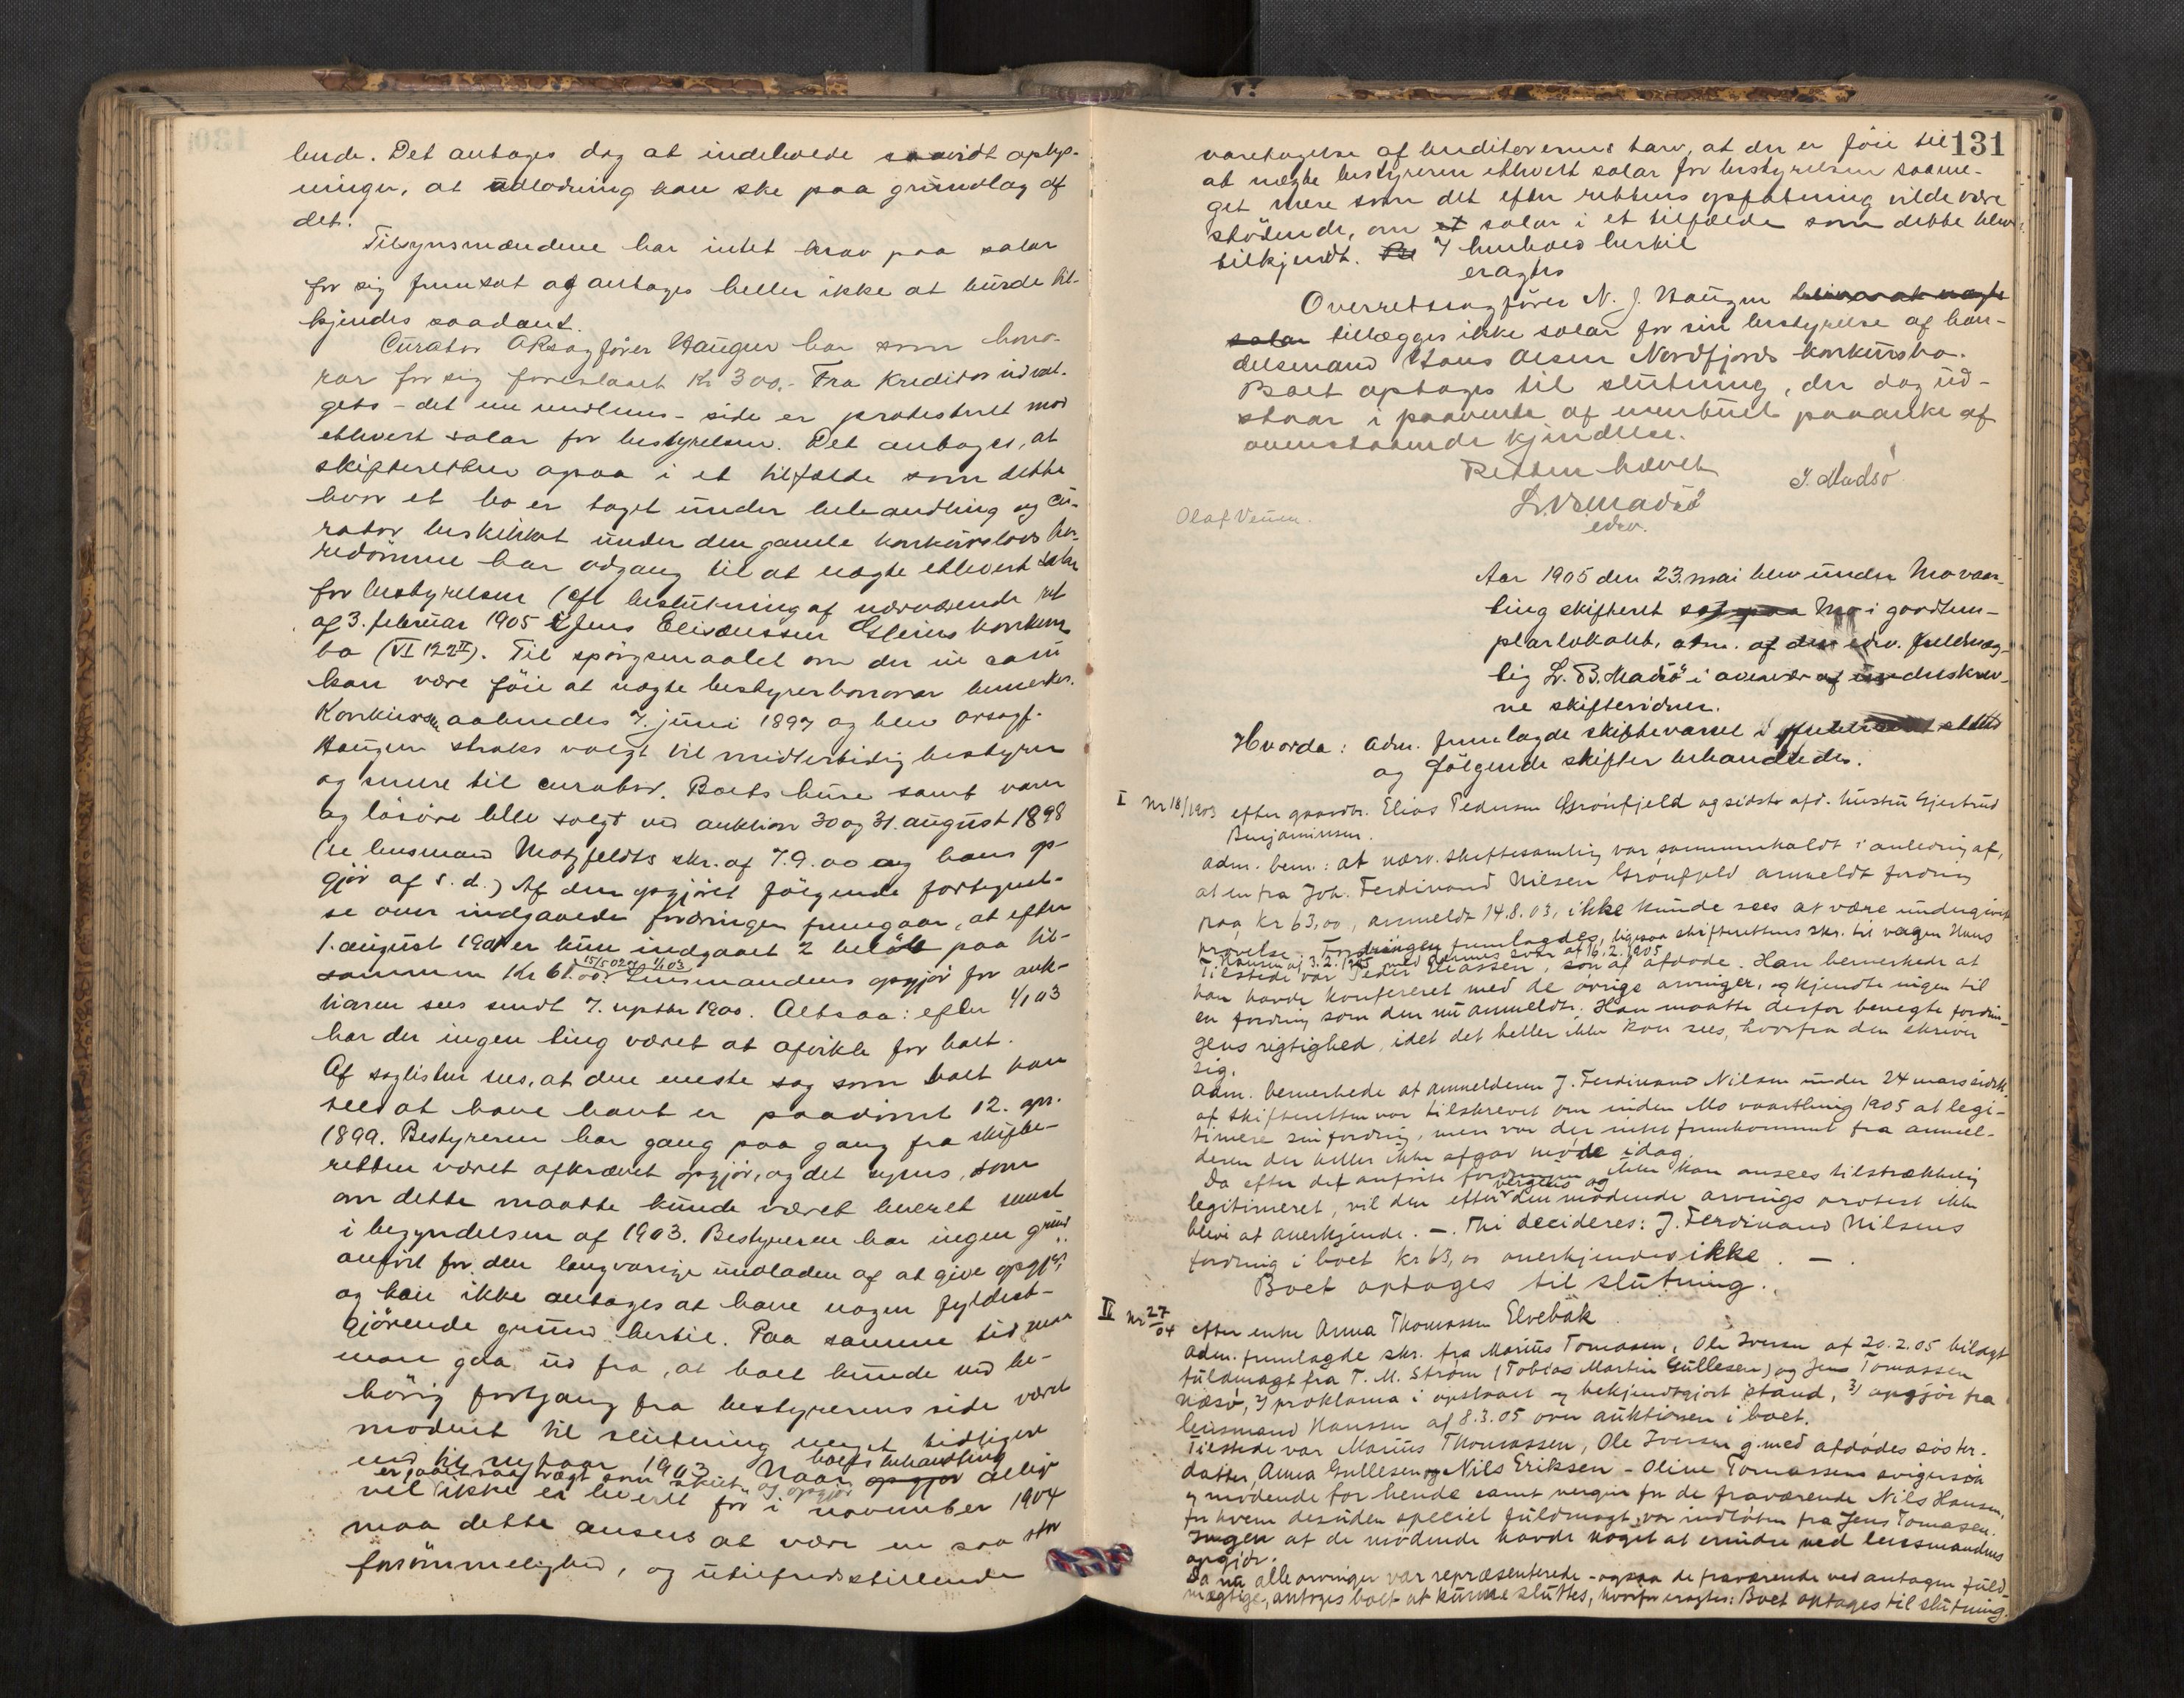 lende. Det antages dog at indeholde saavidt oplys-
ninger, at udlodning kan ske paa grundlag af
det.
Tilsynsmændene har intet krav paa salær
for sig fremsat og antages heller ikke at burde til-
kjendes saadant.
Curator ORsagfører Haugen har som hono-
rar for sig foreslaaet Kr 300.- Fra Kreditorudval-
gets - det ene medlems - side er protesteret mod
ethvert salær for bestyrelsen. Det antages, at
skifteretten ogsaa i et tilfælde som dette
hvor et bo er taget under behandling og cu-
rator beskikket under den gamle konkurslovs her-
redømme har adgang til at nægte ethvert salær
for bestyrelsen (cfr beslutning af nærværende ret
af 3. februar 1905 i Jens Elisæussen konkurs
bo (VI 122II). Til spørgsmaalet om der in casu
kan være føie at nægte bestyrerhonorar bemerkes.
Konkursen aabnedes 7. juni 1897 og blev orsagf.
Haugen straks valgt til midlertidig bestyrer
og senere til curator. Boets huse samt varer
og løsøre blev solgt ved auktion 30 og 31. august 1898
(se lensmand Motzfeldts skr. af 7.9.00 og hans op-
gjør af s. d.) Af den opgjøret følgende fortegnel-
se over indgaaede fordringer fremgaar, at efter
1. august 1901 er kun indgaaet 2 beløb paa til-
15/5 02 og 1/1 03
sammen Kr 61.00. Lensmandens opgjør for auk-
tionen sees sendt 7. septbr 1900. Altsaa: efter 1/1 03
har der ingen ting været at afvikle for boet.
Af saglisten sees, at den eneste sag som boet kan
sees at have havt er paadømt 12. apr.
1899. Bestyreren har gang paa gang fra skifte-
retten været afkrævet opgjør, og det synes, som
om dette maatte kunde været leveret senest
i begyndelsen af 1903. Bestyreren har ingen grund
anført for den langvarige undladen af at give opgjør,
og kan ikke antages at have nogen fyldest-
gjørende grund hertil. Paa samme tid maa
man gaa ud fra, at boet kunde ved be-
hørig fortgang fra bestyrerens side været
modent til slutning meget tidligere
end til nytaar 1903. Naar boets behandling
er saavidt vægt som skeet og opgjør
vel ikke er leveret før i november 1904
maa dette ansees at være en saa stor
forsømmelighed, og utilfredsstillende
131
varetagelse af kreditorernes tarv, at der er føie til
at nægte bestyreren ethvert salær for bestyrelsen saame-
get mere som det efter rettens opfatning vilde være
stødende, om et salær i et tilfælde som dette blev
tilkjendt. I henhold hertil
eragtes
Overretssagfører N. J. Haugen
salær tillægges ikke salær for sin bestyrelse af han-
delsmand Hans Olsen Nordfjords konkursbo.
Boet optages til slutning, der dog ud-
staar i paavente af eventuel paaanke af
ovenstaaende kjendelse.
Retten hævet
L. B. Madsø
edsv.
J. Madsø
Olaf Venem.
Aar 1905 den 23. mai blev under Mo vaar-
ting skifteret sat paa Mo i goodtem-
plarlokalet, adm. af den edsv. fuldmæg-
tig L. B. Madsø i overvær af underskrev-
ne skiftevidner.
Hvorda: Adm. fremlagde skiftevarsel i
og følgende skifter behandledes.
I Nr 18/1903 efter gaardbr. Elias Pedersen Grønfjeld og sidste afd. hustru Gjertrud
Benjaminsen.
Adm. bem: at nærv. skiftesamling var sammenkaldt i anledning af,
at en fra Joh. Ferdinand Nilsen Grønfjeld anmeldt fordring
paa kr 63,00, anmeldt 14.8.03, ikke kunde sees at være undergivet
prøvelse. Fordringen fremlagdes, ligesaa skifterettens skr. til vergen Hans
Hansen af 3.2.1905 med dennes svar af 16.2.1905
Tilstede var Peder Eliassen, søn af afdøde. Han bemerkede at
han havde konfereret med de øvrige arvinger, og kjendte ingen til
en fordring som den nu anmeldte. Han maatte derfor benegte fordrin-
gens rigtighed, idet det heller ikke kan sees, hvorfra den skriver
sig.
Adm. bemerkede at anmelderen J. Ferdinand Nilsen under 24 mars sidstl.
af skifteretten var tilskrevet om inden Mo vaarthing 1905 at legi-
timere sin fordring, men var der intet fremkommet fra anmel-
deren der heller ikke afgav møde idag.
Da efter det anførte fordringen ikke kan ansees tilstrækkelig
legitimeret, vil den efter vergens og den mødende arvings protest ikke
blive at anerkjende. -. Thi decideres: J. Ferdinand Nilsens
fordring i boet kr 63,00 anerkjendes ikke. -.
Boet optages til slutning.
II Nr 27/04 efter enke Anna Thomassen Elvebak
Adm. fremlagde skr. fra Marius Tomasen, Ole Iversen af 20.2.05 bilagt
fuldmagt fra T. M. Strøm (Tobias Martin Gullesen) og Jens Tomassen
Næsø, 2) proklama i opslaaet og bekjendtgjort stand, 3) opgjør fra
lensmand Hanssen af 8.3.05 over auktionen i boet.
Tilstede var Marius Thomassen, Ole Iversen g. med afdødes søster-
datter, Anna Gullesen og Nils Eriksen - Oline Tomassens svigersøn
og mødende for hende samt vergen for de fraværende Nils Hansen,
for hvem desuden speciel fuldmagt var indløben fra Jens Tomasen.
Ingen af de mødende havde noget at erindre ved lensmandens
opgjør.
Da nu alle arvinger var repræsenterede - ogsaa de fraværende ved antagen fuld-
mægtige, antages boet at kunne sluttes, hvorfor eragtes: Boet optages til slutning.